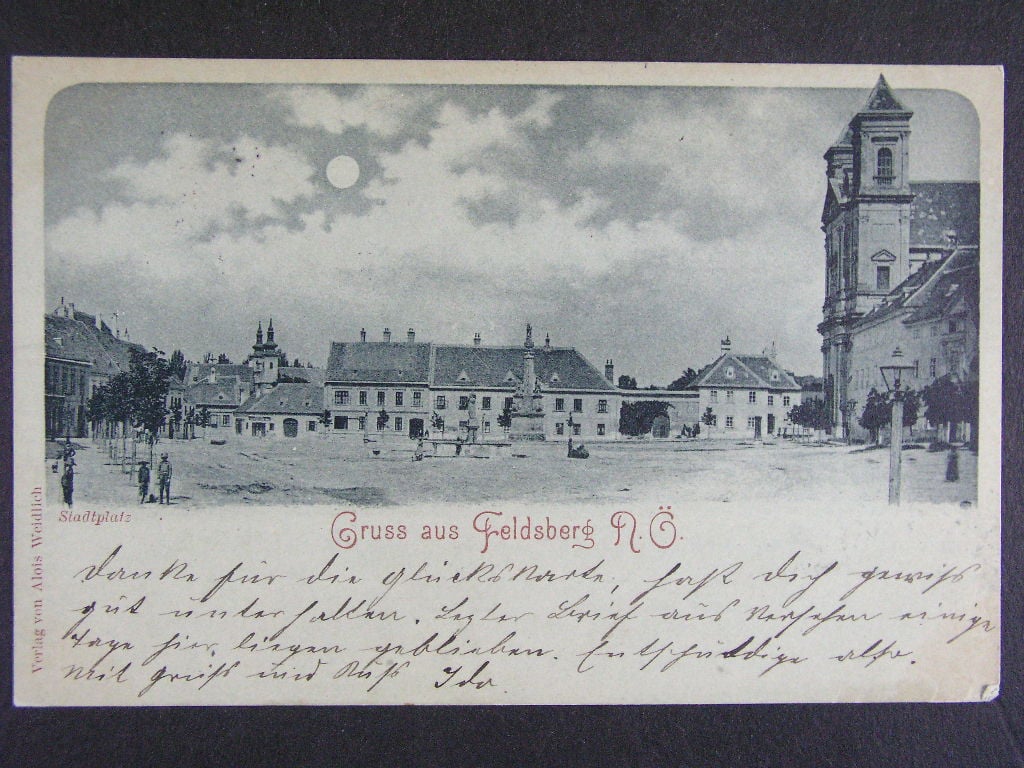 Stadtplatz
Gruss aus Feldsberg N. Ö.
Verlag von Alois Weidlich
Danke für die Glückskarte, hast Dich gewiss
gut unterhalten. Letzter Brief aus Versehen einige
Tage hier liegen geblieben. Entschuldige also.
Mit Gruß und Kuß Ida.